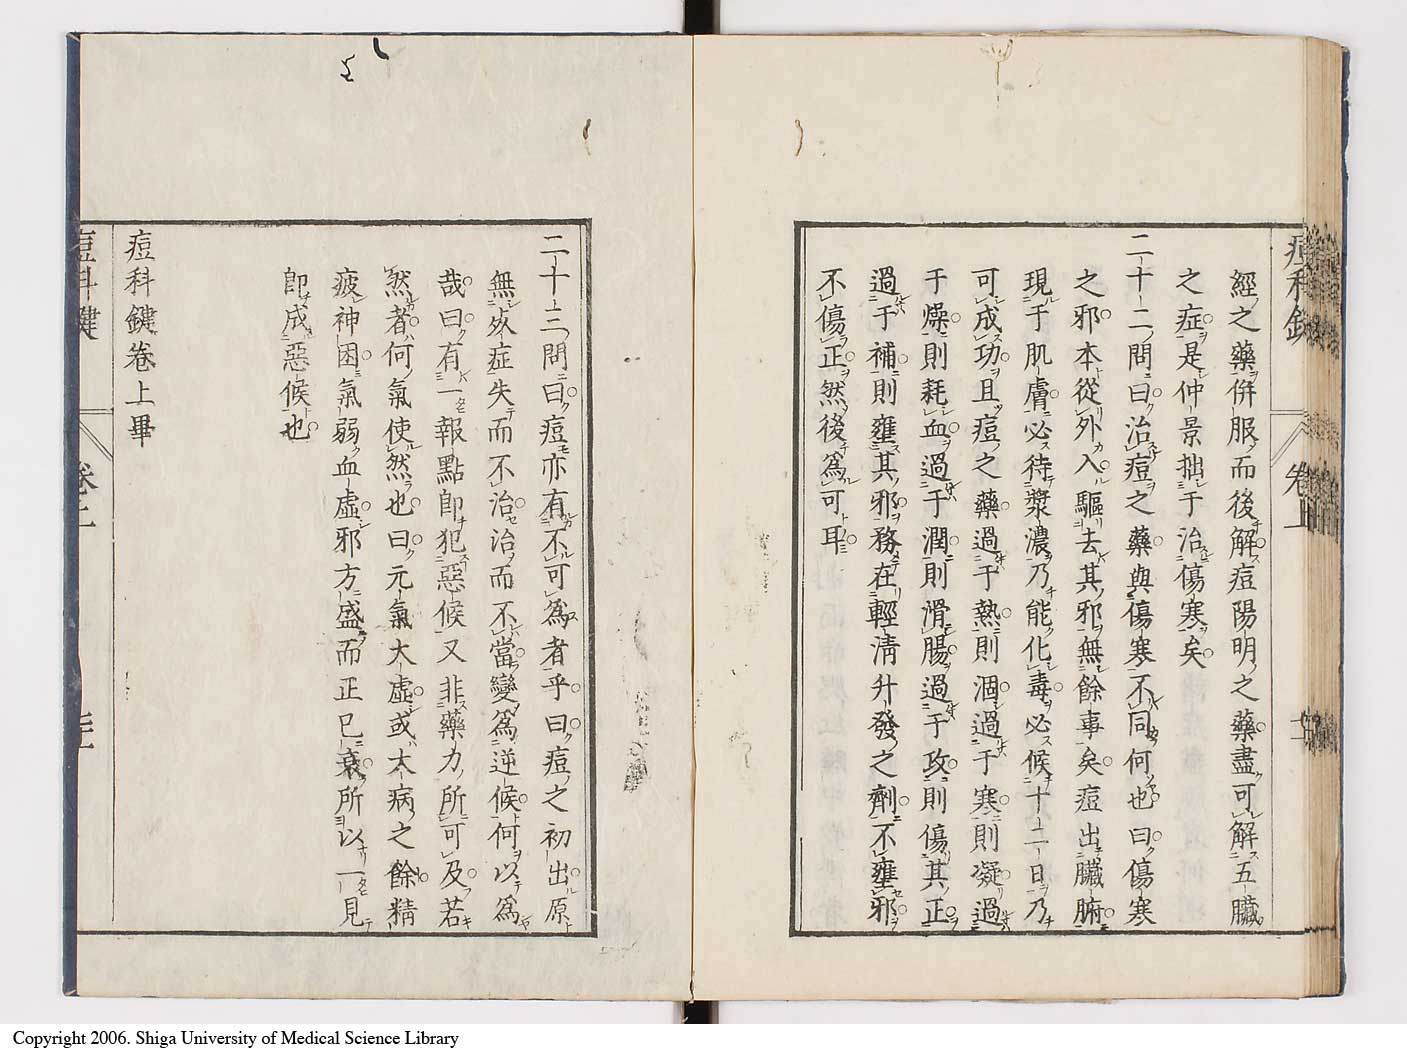 經之藥併服而後解痘陽明之藥盡可解五臟
之症是仲景拙于治傷寒矣
二十二問曰治痘之藥與傷寒不同何也曰傷寒
之邪本從外入驅去其邪無餘事矣痘出臟腑
現于肌膚必待漿濃乃能化毒必候十二日乃
可成功且痘之藥過于熱則涸過于寒則凝過
于燥則耗血過于潤則滑腸過于攻則傷其正
過于補則壅其邪務在輕淸升發之劑不壅邪
不傷正然後爲可耳
二十三問曰痘亦有不可爲者乎曰痘之初出原
無歹症失而不治治而不當變爲逆候何以爲
哉曰有一報點卽犯惡候又非藥力所可及若
然者何氣使然也曰元氣大虛或大病之餘精
疲神困氣弱血虛邪方盛而正已衰所以一見
卽成惡候也
痘科鍵卷上畢
痘科鍵
Copyright 2006. Shiga University of Medical Science Library